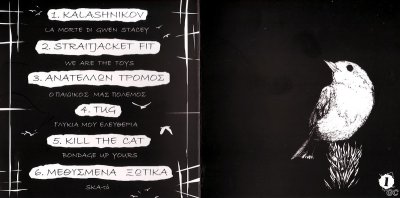 1. KALASHNIKOV
LA MORTE DI GWEN STACEY
2. STRAITJACKET FIT
WE ARE THE TOYS
3. ΑΝΑΤΕΛΛΩΝ ΤΡΟΜΟΣ
Ο ΠΑΙΔΙΚΟΣ ΜΑΣ ΠΟΛΕΜΟΣ
4. TUG
ΓΛΥΚΙΑ ΜΟΥ ΕΛΕΥΘΕΡΙΑ
5. KILL THE CAT
BONDAGE UP YOURS
6. ΜΕΘΥΣΜΕΝΑ ΞΩΤΙΚΑ
1